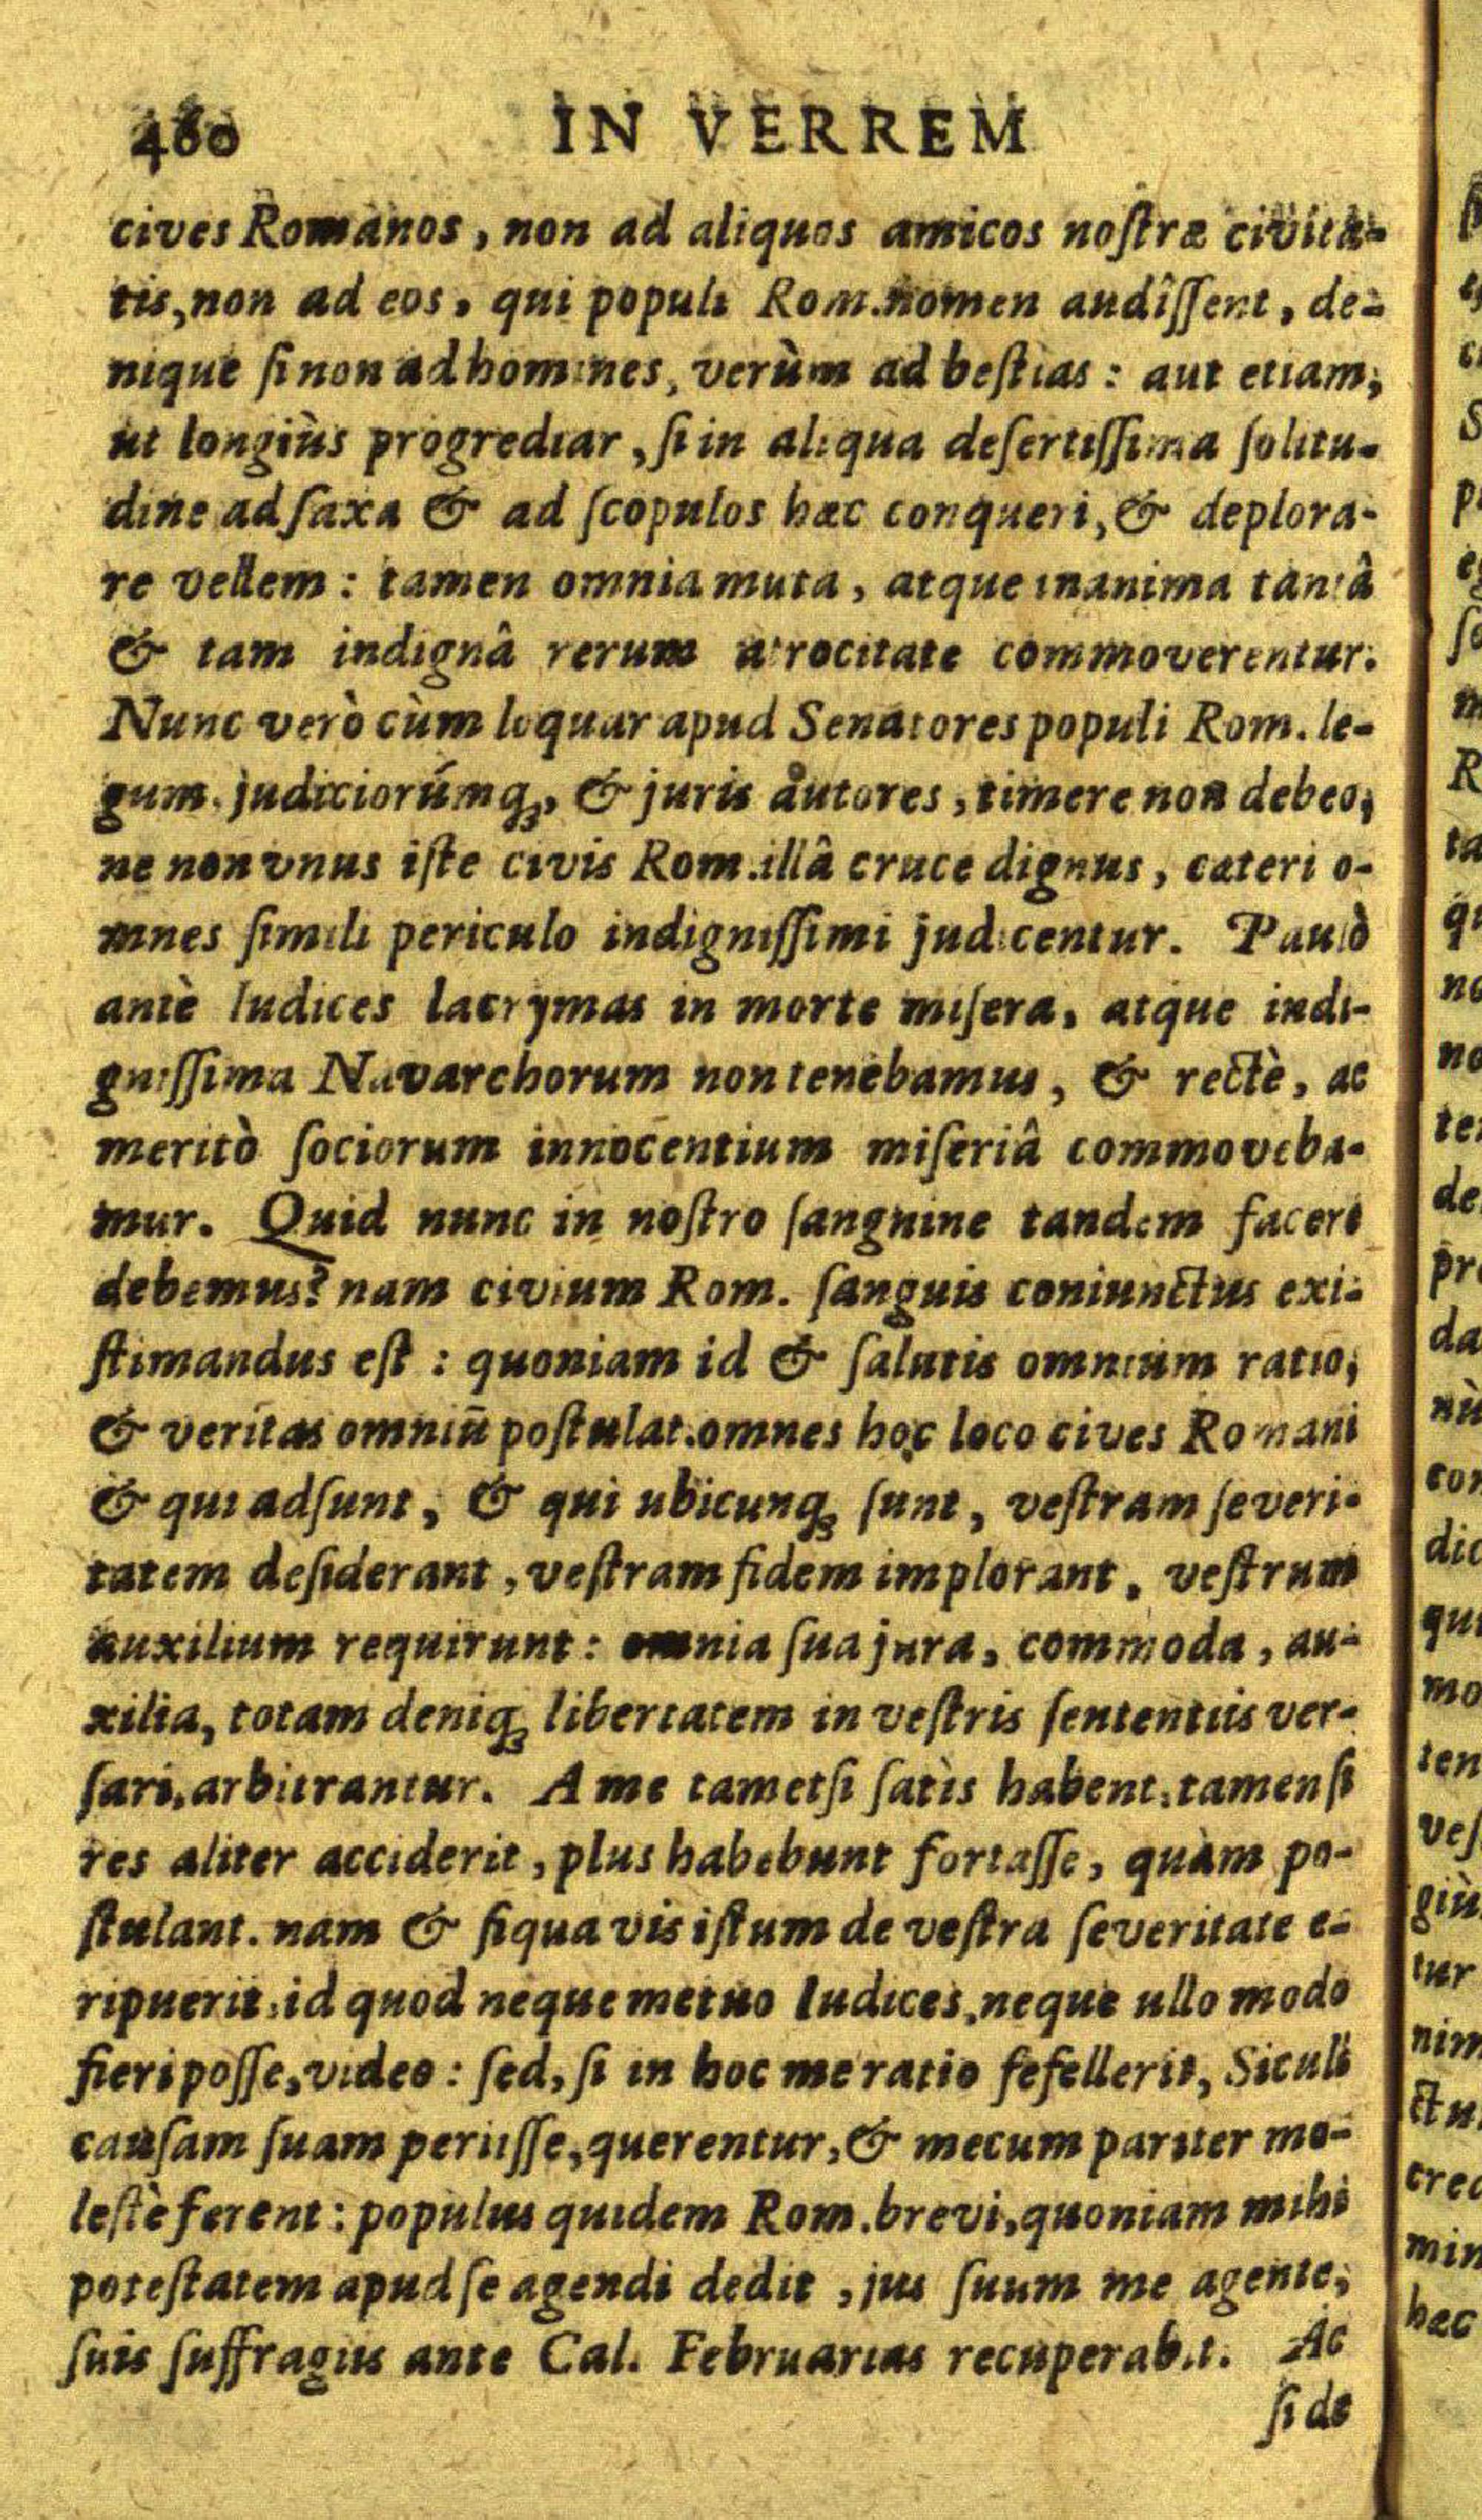 460 IN VERREM
cives Romanos, non ad aliquos amicos nostræ civita-
tis, non ad eos, qui populi Rom. nomen audîssent, de-
nique si non ad homines, verùm ad bestias : aut etiam,
ut longiùs progrediar, si in aliqua desertissima solitu-
dine ad saxa & ad scopulos hæc conqueri, & deplora-
re vellem : tamen omnia muta, atque inanima tantâ
& tam indignâ rerum atrocitate commoverentur.
Nunc verò cùm loquar apud Senatores populi Rom. le-
gum, judiciorúmq;, & juris autores, timere non debeo,
ne non vnus iste civis Rom. illâ cruce dignus, cæteri o-
mnes simili periculo indignissimi judicentur. Paulò
antè Iudices lacrymas in morte misera, atque indi-
gnissima Navarchorum non tenebamus, & rectè, ac
meritò sociorum innocentium miseriâ commoveba-
mur. Quid nunc in nostro sanguine tandem facere
debemus? nam civium Rom. sanguis coniunctus exi-
stimandus est : quoniam id & salutis omnium ratio,
& veritas omniũ postulat. omnes hoc loco cives Romani
& qui adsunt, & qui ubicunq; sunt, vestram severi-
tatem desiderant, vestram fidem implorant, vestrum
auxilium requirunt : omnia sua jura, commoda, au-
xilia, totam deniq; libertatem in vestris sententiis ver-
sari, arbitrantur. A me tametsi satis habent, tamen si
res aliter acciderit, plus habebunt fortasse, quàm po-
stulant. nam & siqua vis istum de vestra severitate e-
ripuerit, id quod neque metuo Iudices, neque ullo modo
fieri posse, video : sed, si in hoc me ratio fefellerit, Siculi
causam suam periisse, querentur, & mecum pariter mo-
lestè ferent : populus quidem Rom. brevi, quoniam mihi
potestatem apud se agendi dedit, jus suum me agente,
suis suffragiis ante Cal. Februarias recuperabit. Ac
si de